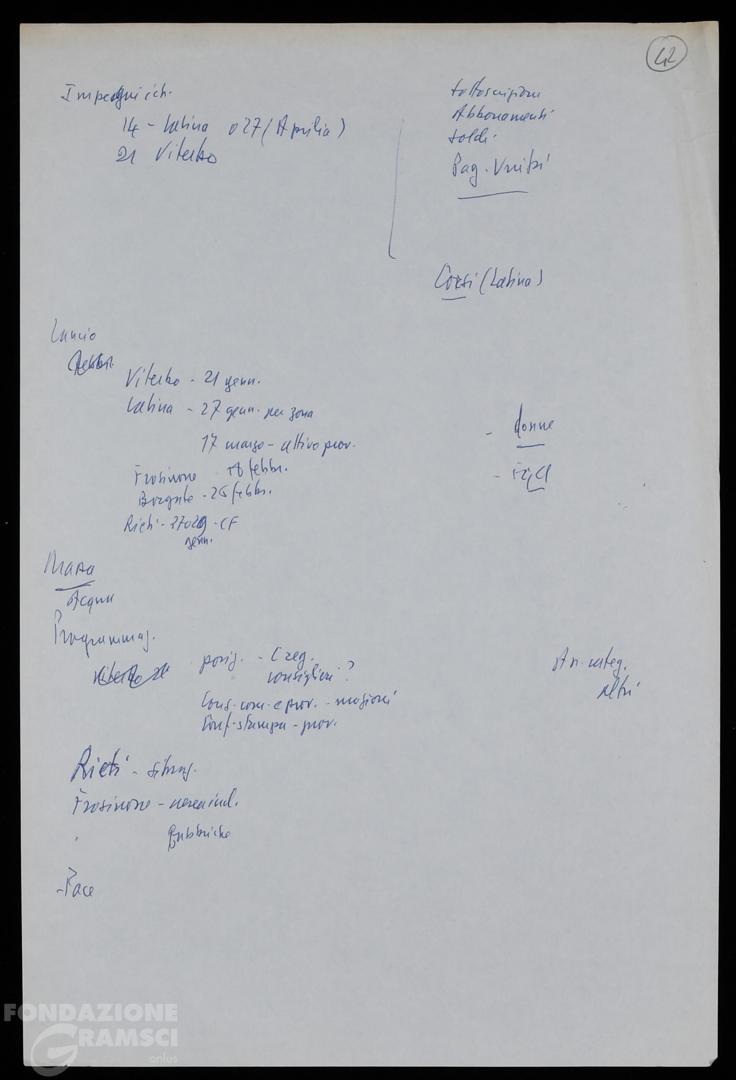 42
Impegni ich.
14 - Latina o 27 (Aprilia)
21 Viterbo
sottoscrizione
Abbonamenti
soldi
Pag. Unità
Corsi (Latina)
Lancio
Viterbo - 21 genn.
Latina - 27 genn. per zona
17 marzo - attivo prov.
Frosinone 18 febbr.
- 25 febbr.
Rieti - 27 o 29 - CF
genn.
- donne
- FGCI
Acqua
Programmaz.
posiz. - C reg.
consiglieri?
Cons. com. e prov. - mozioni
Conf. stampa - prov.
integ.
altri
Rieti - situaz.
Frosinone - 
- Pace
FONDAZIONE
GRAMSCI
onlus